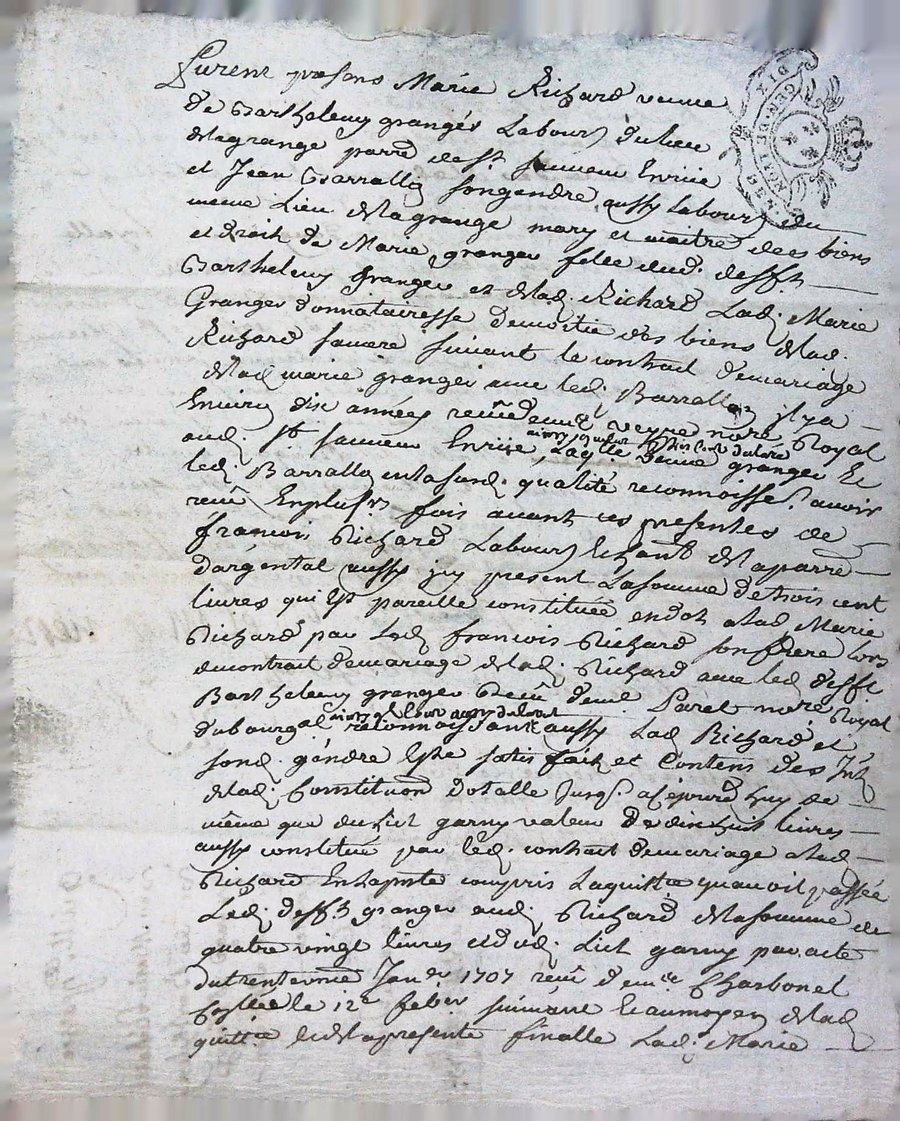 furent presens Marie Richard veuve
de Barthelemy granger Labour du lieu
de la grange parre de st sauveur En rüe
et Jean Barrallo son gendre aussy Labour du
meme Lieu de la grange mary et maitre des biens
et droit de Marie granger fille dud. defft
Barthelemy Granger et de lad. Richard Lad. Marie
Granger donnatairesse de moitie des biens de lad.
Richard sa mere suivant le contrait de mariage
de lad marie granger avec led. Barrallo il y a
Environ dix années receu de me veyre nore Royal
aud. st sauveur En rüe, laquelle veuve granger Et
led. Barrallo en la susd. qualité reconnoisse avoir
receu En plusrs fois avant ces presentes de
francois Richard Labour de la parre
d'argental aussy icy present La somme de trois cent
livres qui est pareille constituée en dot a lad Marie
Richard par Led francois Richard son frere lors
du contrait de mariage de lad. Richard avec led defft
Barthelemy granger Receu de me Paret nore Royal
du bourgal reconnoissant aussy Lad Richard et
son d. gendre Estre satisfait et Contens des Intz
de lad. Constitution dotalle Jusq. a ce jourd'huy de
même que du lit garny valeur de dix huit livres
aussy constitué par led. contrait de mariage a lad
Richard En la presente compris La quittce qu'avoit passée
Led. defft granger aud. Richard de la somme de
quatre vingt livres et dud. Lict garny par acte
du trente unie Janvr 1707 receu de me Charbonel
le 12e febvr suivant et au moyen de lad
quittce et de la presente finalle Lad. Marie
DIX
GEN. DE LION